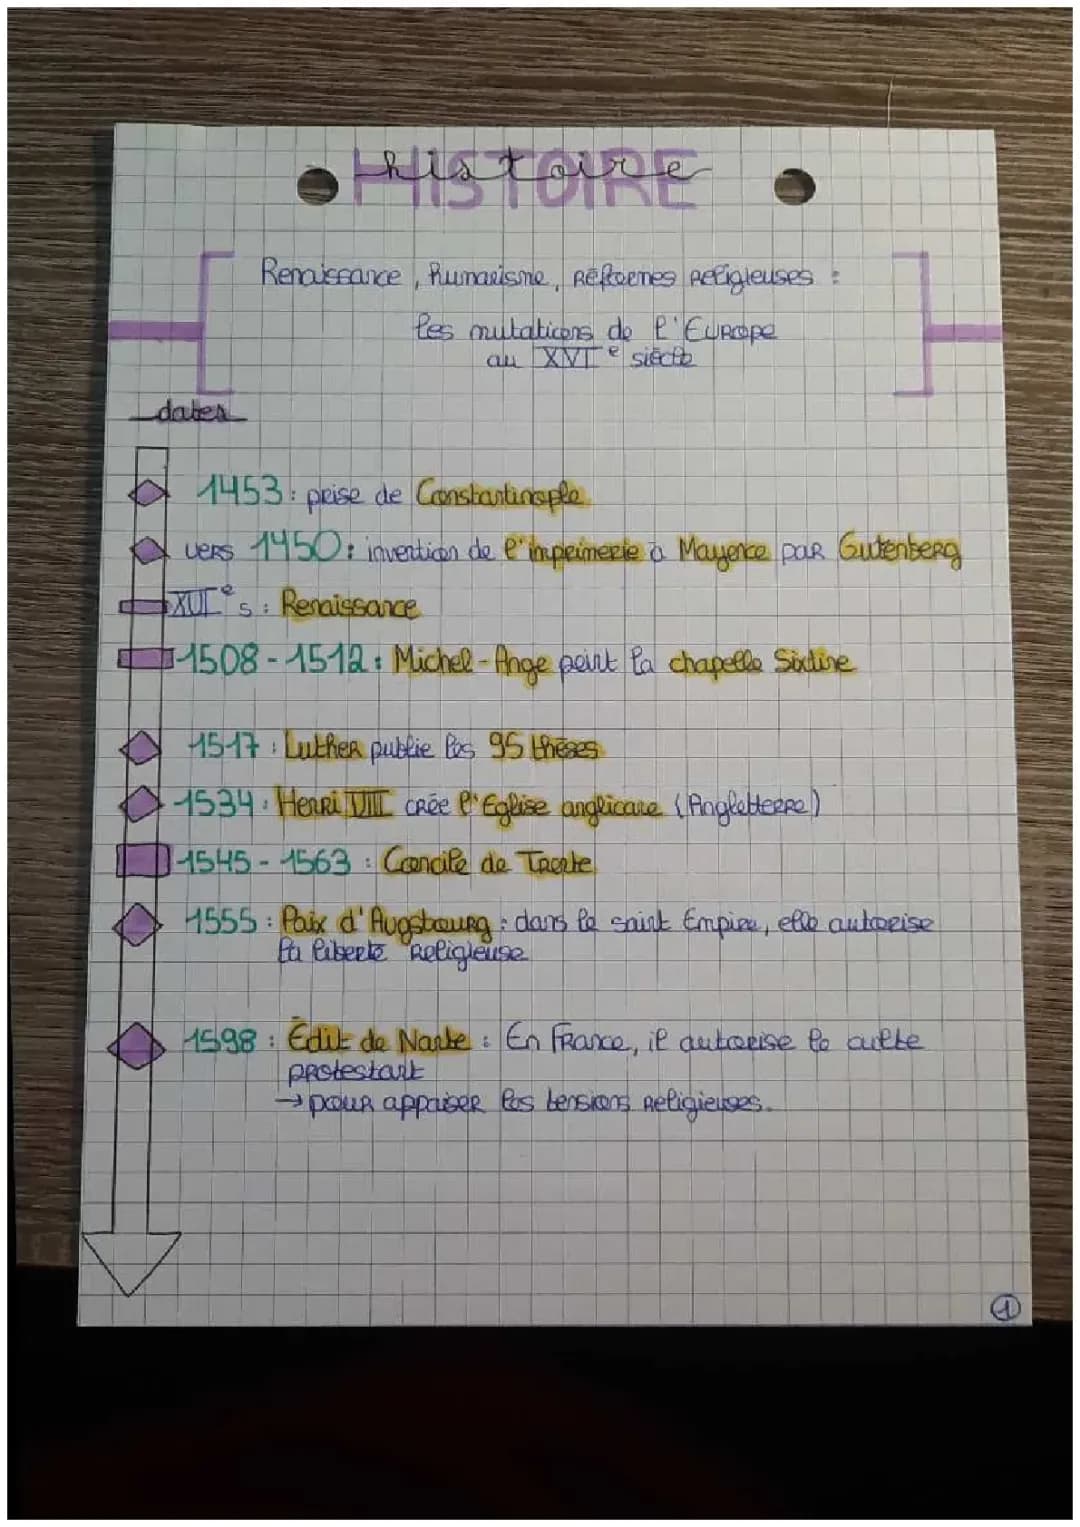 histoire
HISTOIRE
Renaissance, humanisme, réformes religieuses :
les mutations de l'Europe
au XVIe siècle
dates
1453 : prise de Constantinople
vers 1450 : invention de l'imprimerie à Mayence par Gutenberg
XVIe s : Renaissance
1508 - 1512 : Michel-Ange peint la chapelle Sixtine
1517 : Luther publie les 95 thèses
1534 : Henri VIII crée l'Eglise anglicane (Angletterre)
1545 - 1563 : Concile de Trente
1555 : Paix d'Augsbourg : dans le saint Empire, elle autorise
la liberté religieuse
1598 : Édit de Nante : En France, il autorise le culte
protestant
→ pour appaiser les tensions religieuses.
1